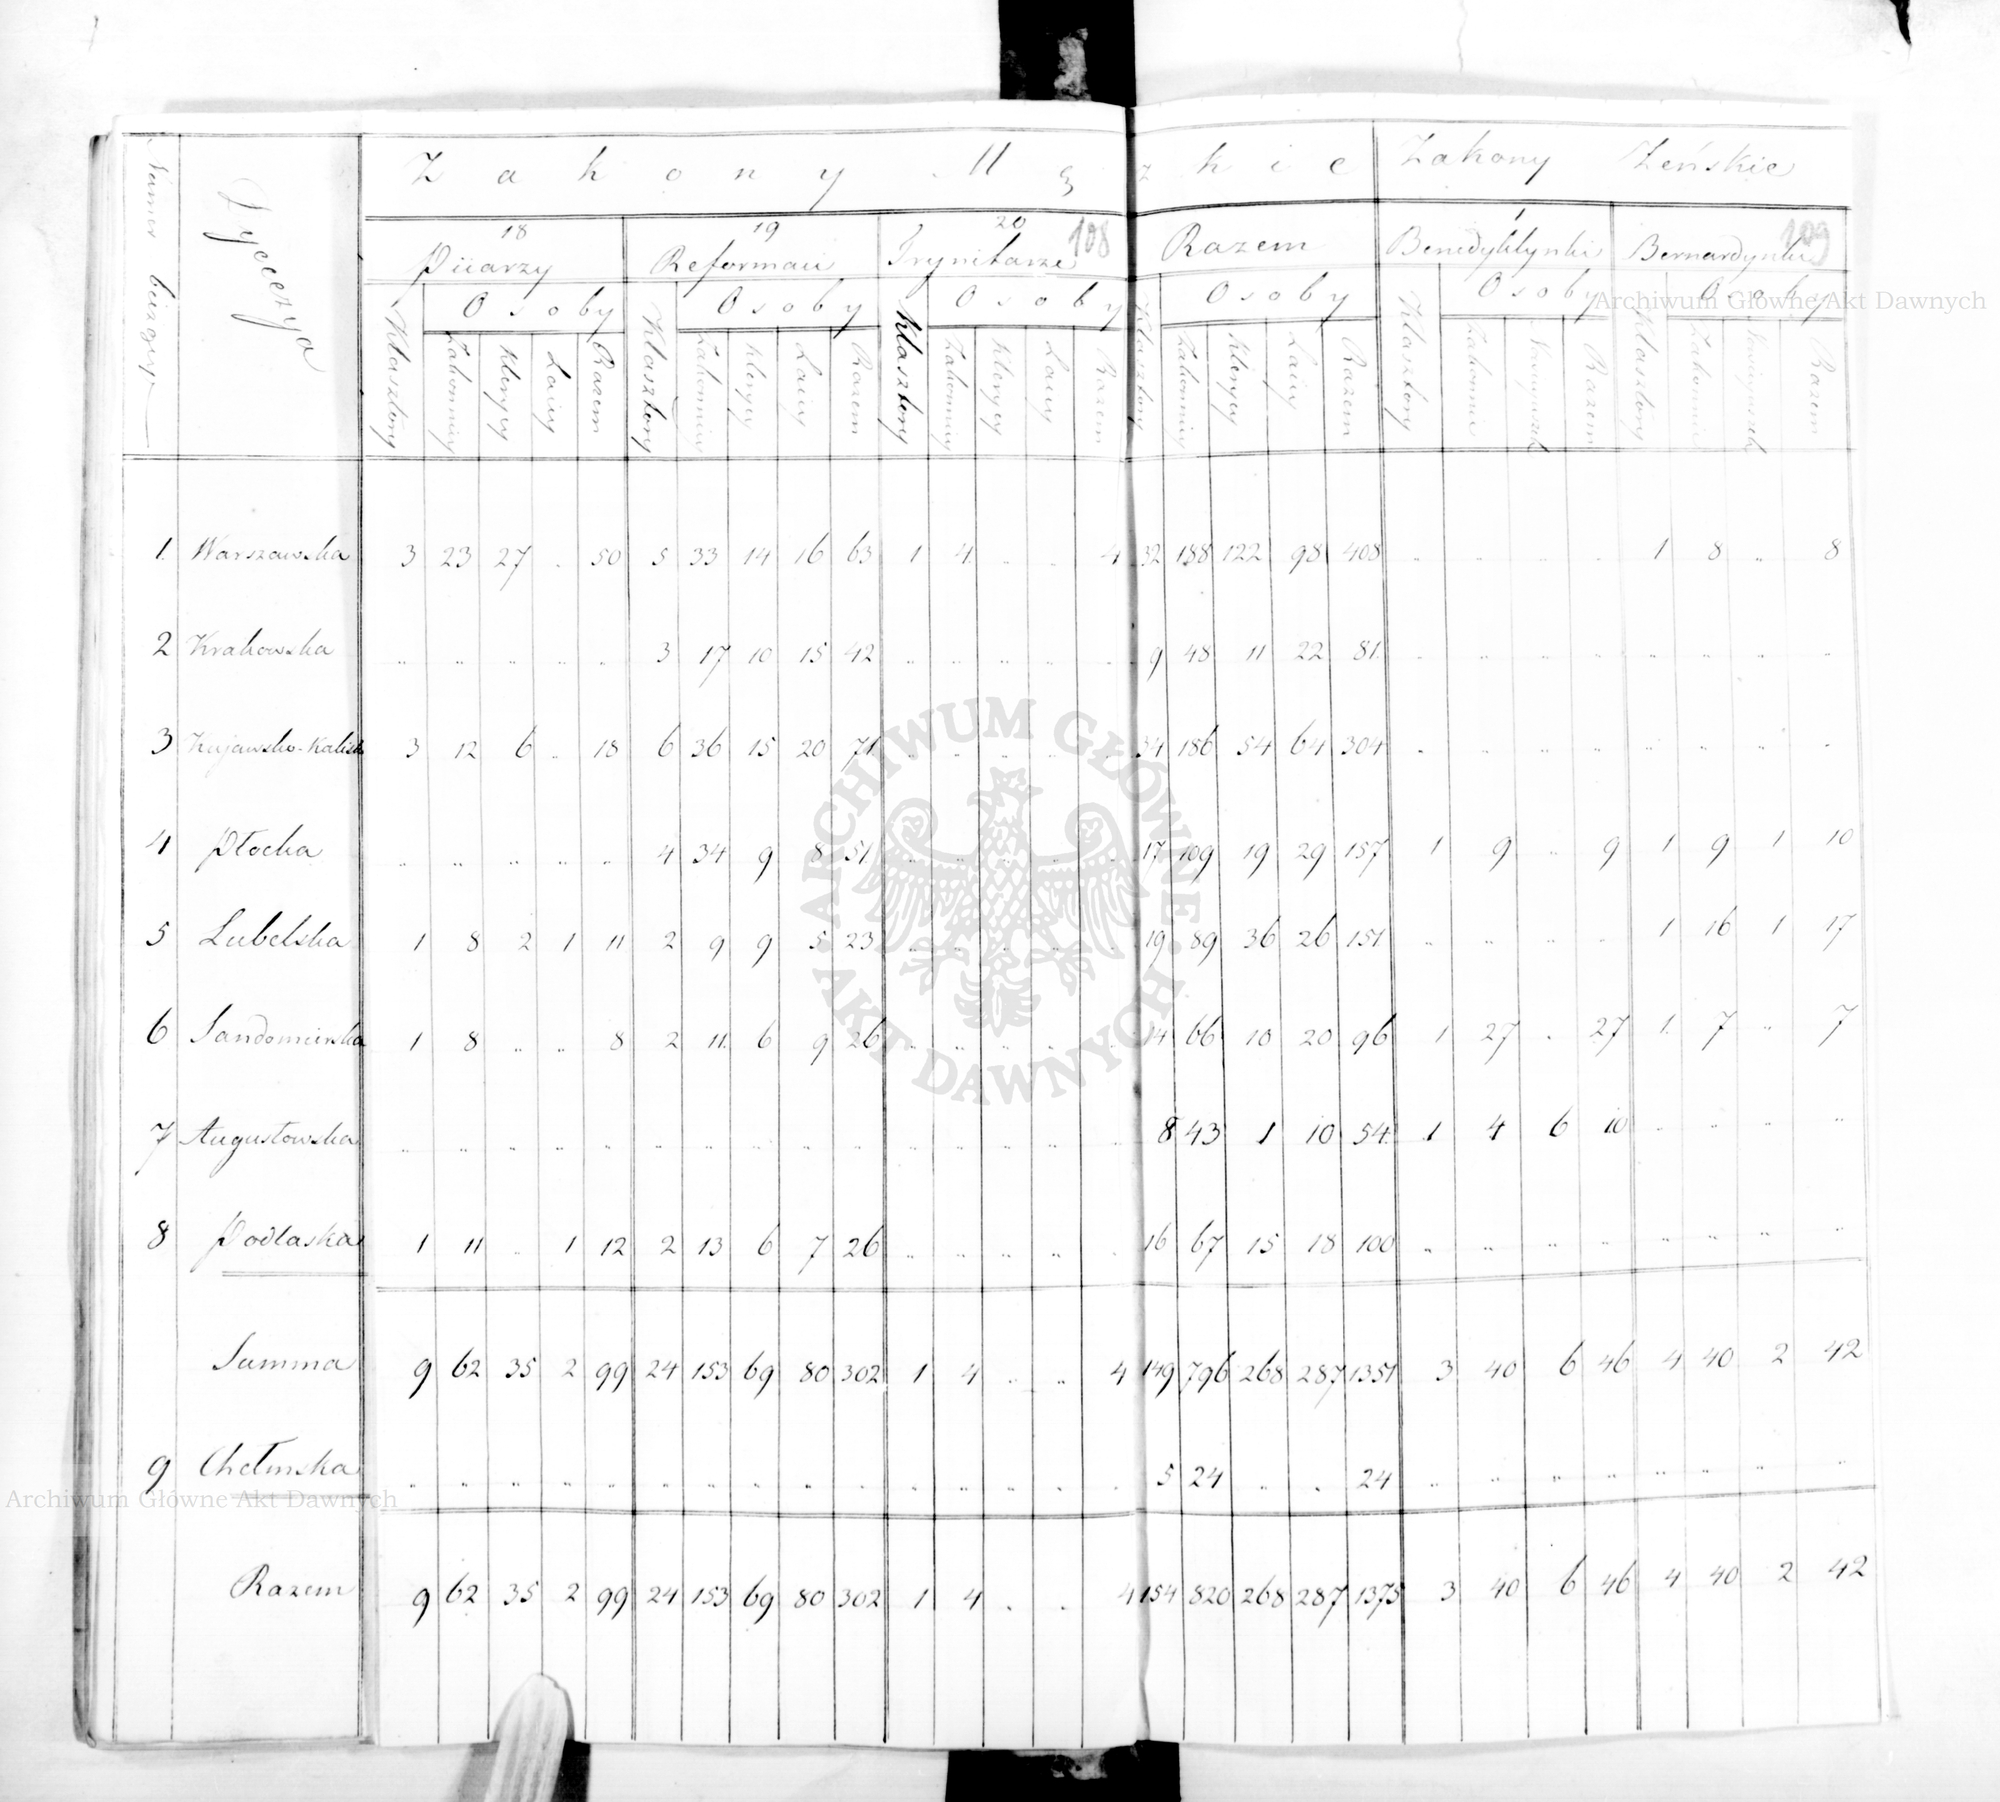 Zakony Męzkie Zakony Żeńskie
Numer bieżący Dyecezya
18 19 20 108 1 109
Piiarzy Reformaci Trynitarze Razem Benedyktynki Bernardynki
Osoby Osoby Osoby Osoby Osoby Osoby
Klasztory Zakonnicy Klerycy Laicy Razem Klasztory Zakonnicy Klerycy Laicy Razem Klasztory Zakonnicy Klerycy Laicy Razem Klasztory Zakonnicy Klerycy Laicy Razem Klasztory Zakonnic Razem Klasztory Zakonnic Razem
1. Warszawska 3 23 27 .. 50 5 33 14 16 63 1 4 .. .. 4 32 188 122 98 408 .. .. .. .. 1 8 .. 8
2 Krakowska .. .. .. .. .. 3 17 10 15 42 .. .. .. .. .. 9 48 11 22 81 .. .. .. .. .. .. .. ..
3 Kujawsko-Kalisk 3 12 6 .. 18 6 36 15 20 71 .. .. .. .. .. 34 186 54 64 304 .. .. .. .. .. .. .. ..
4 Płocka .. .. .. .. .. 4 34 9 8 51 .. .. .. .. .. 17 109 19 29 157 1 9 .. 9 1 9 1 10
5 Lubelska 1 8 2 1 11 2 9 9 5 23 .. .. .. .. .. 19 89 36 26 151 .. .. .. .. 1 16 1 17
6 Sandomierska 1 8 .. .. 8 2 11 6 9 26 .. .. .. .. .. 14 66 10 20 96 1 27 .. 27 1 7 .. 7
7 Augustowska .. .. .. .. .. .. .. .. .. .. .. .. .. .. .. 8 43 1 10 54 1 4 6 10 .. .. .. ..
8 Podlaska 1 11 .. 1 12 2 13 6 7 26 .. .. .. .. .. 16 67 15 18 100 .. .. .. .. .. .. .. ..
Summa 9 62 35 2 99 24 153 69 80 302 1 4 .. .. 4 149 796 268 287 1351 3 40 6 46 4 40 2 42
9 Chełmska .. .. .. .. .. .. .. .. .. .. .. .. .. .. .. 5 24 .. .. 24 .. .. .. .. .. .. .. ..
Razem 9 62 35 2 99 24 153 69 80 302 1 4 .. .. 4 154 820 268 287 1375 3 40 6 46 4 40 2 42
Archiwum Główne Akt Dawnych
ARCHIWUM GŁÓWNE · AKT DAWNYCH ·
Archiwum Główne Akt Dawnych